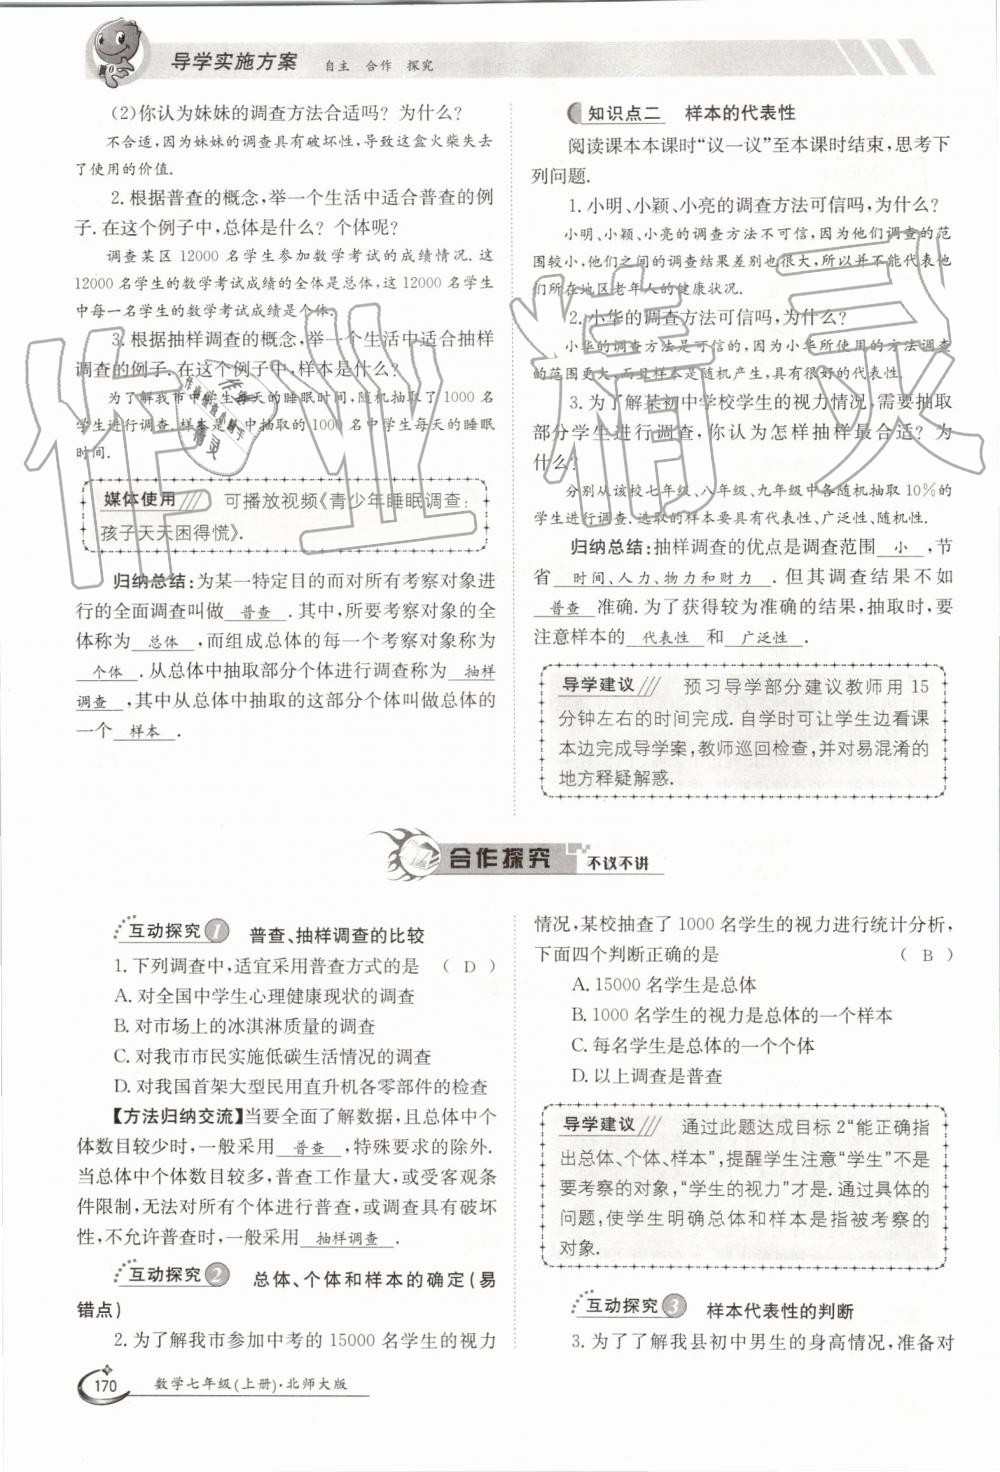 导学实施方案 自主 合作 探究
(2)你认为妹妹的调查方法合适吗？为什么？
不合适,因为妹妹的调查具有破坏性,导致这盒火柴失去
了使用的价值.
2.根据普查的概念,举一个生活中适合普查的例
子.在这个例子中,总体是什么？个体呢?
调查某区 12000 名学生参加数学考试的成绩情况.这
12000名学生的数学考试成绩的全体是总体,这 12000名学生
中每一名学生的数学考试成绩是个体.
3.根据抽样调查的概念,举一个生活中适合抽样
调查的例子.在这个例子中,样本是什么?
为了解我市中学生每天的睡眠时间,随机抽取了 1000 名
学生进行调查.样本是从中抽取的1000名中学生每天的睡眠
时间.
媒体使用 可播放视频《青少年睡眠调查:
孩子天天困得慌》.
归纳总结:为某一特定目的而对所有考察对象进
行的全面调查叫做 普查 .其中,所要考察对象的全
体称为 总体 ,而组成总体的每一个考察对象称为
个体 .从总体中抽取部分个体进行调查称为 抽样
调查 ,其中从总体中抽取的这部分个体叫做总体的
一个 样本 .
知识点二 样本的代表性
阅读课本本课时“议一议”至本课时结束,思考下
列问题.
1.小明、小颖、小亮的调查方法可信吗,为什么?
小明、小颖、小亮的调查方法不可信,因为他们调查的范
围较小,他们之间的调查结果差别也很大,所以并不能代表他
们所在地区老年人的健康状况.
2.小华的调查方法可信吗,为什么?
小华的调查方法是可信的,因为小华所使用的方法调查
的范围更大,而且样本是随机产生,具有很好的代表性.
3.为了解某初中学校学生的视力情况,需要抽取
部分学生进行调查,你认为怎样抽样最合适？为
什么?
分别从该校七年级、八年级、九年级中各随机抽取10%的
学生进行调查.选取的样本要具有代表性、广泛性、随机性.
归纳总结:抽样调查的优点是调查范围 小 ,节
省 时间、人力、物力和财力 .但其调查结果不如
普查 准确.为了获得较为准确的结果,抽取时,要
注意样本的 代表性 和 广泛性 .
导学建议 预习导学部分建议教师用 15
分钟左右的时间完成.自学时可让学生边看课
本边完成导学案,教师巡回检查,并对易混淆的
地方释疑解惑.
合作探究 不议不讲
互动探究1 普查、抽样调查的比较
1.下列调查中,适宜采用普查方式的是 ( D )
A.对全国中学生心理健康现状的调查
B.对市场上的冰淇淋质量的调查
C.对我市市民实施低碳生活情况的调查
D.对我国首架大型民用直升机各零部件的检查
【方法归纳交流】当要全面了解数据,且总体中个
体数目较少时,一般采用 普查 ,特殊要求的除外.
当总体中个体数目较多,普查工作量大,或受客观条
件限制,无法对所有个体进行普查,或调查具有破坏
性,不允许普查时,一般采用 抽样调查 .
互动探究2 总体、个体和样本的确定(易
错点)
2.为了解我市参加中考的 15000 名学生的视力
情况,某校抽查了 1000 名学生的视力进行统计分析,
下面四个判断正确的是 ( B )
A.15000 名学生是总体
B.1000 名学生的视力是总体的一个样本
C.每名学生是总体的一个个体
D.以上调查是普查
导学建议 通过此题达成目标 2“能正确指
出总体、个体、样本”,提醒学生注意“学生”不是
要考察的对象,“学生的视力”才是.通过具体的
问题,使学生明确总体和样本是指被考察的
对象.
互动探究3 样本代表性的判断
3.为了了解我县初中男生的身高情况,准备对
170 数学七年级(上册)·北师大版
作业精灵